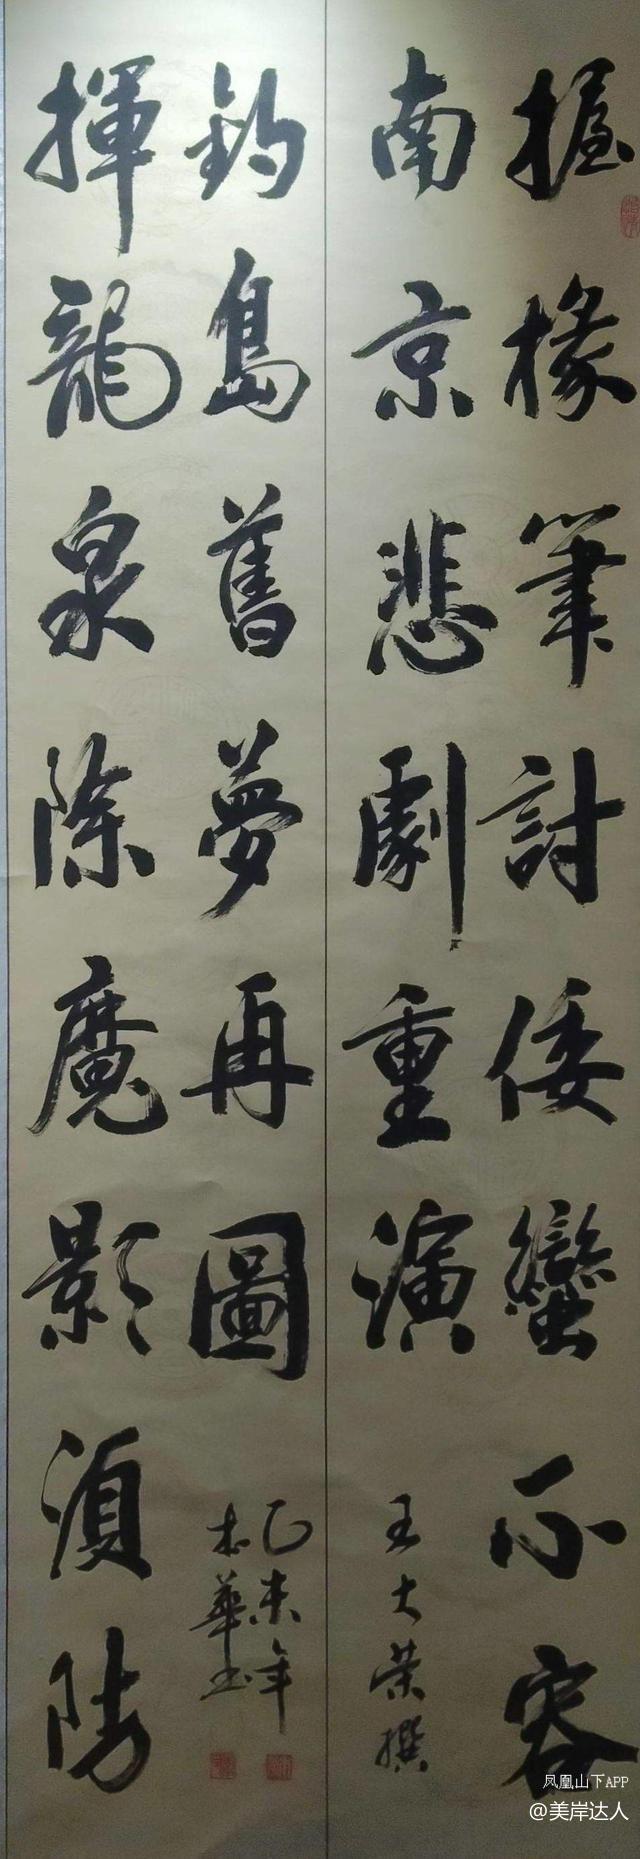 握椽筆討倭蠻不容
南京悲劇重演
王大荣撰
揮龍泉除魔影須防
釣島舊夢再圖
乙未年
木華书
凤凰山下APP
@美岸达人